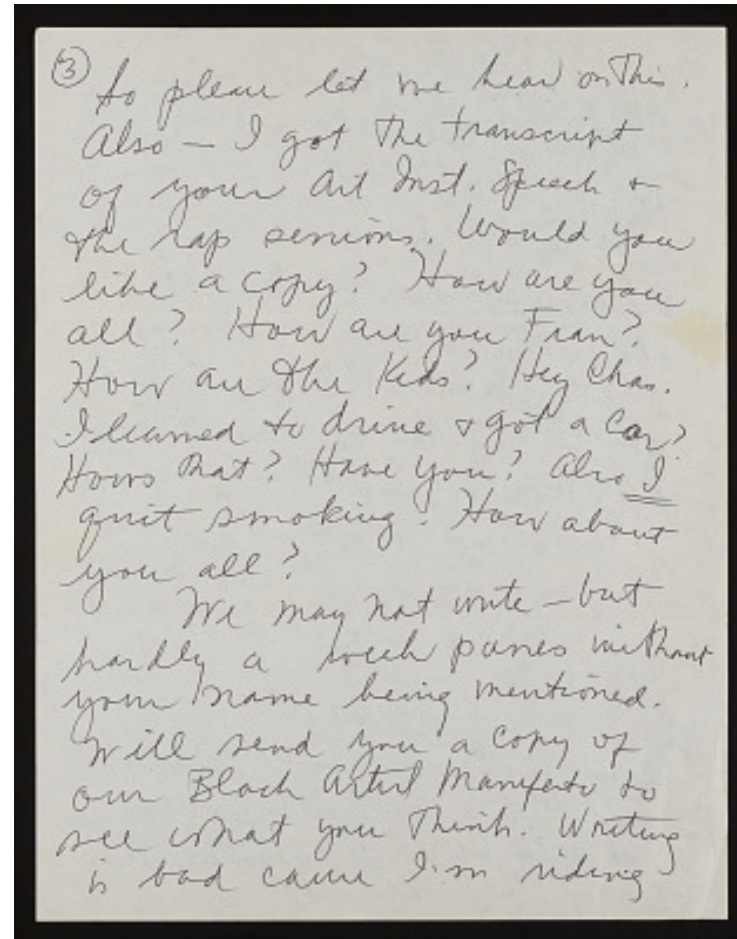 3 So please let me hear on this.
Also — I got the transcript
of your Art Inst. Speech &
the rap sessions. Would you
like a copy? How are you
all? How are you Fran?
How are the Kids? Hey Chas.
I learned to drive & got a car?
Hows that? Have you? Also I
quit smoking! How about
you all?
We may not write — but
hardly a week passes without
your name being mentioned.
Will send you a copy of
our Black Artist Manifesto to
see what you think. Writing
is bad cause I'm riding